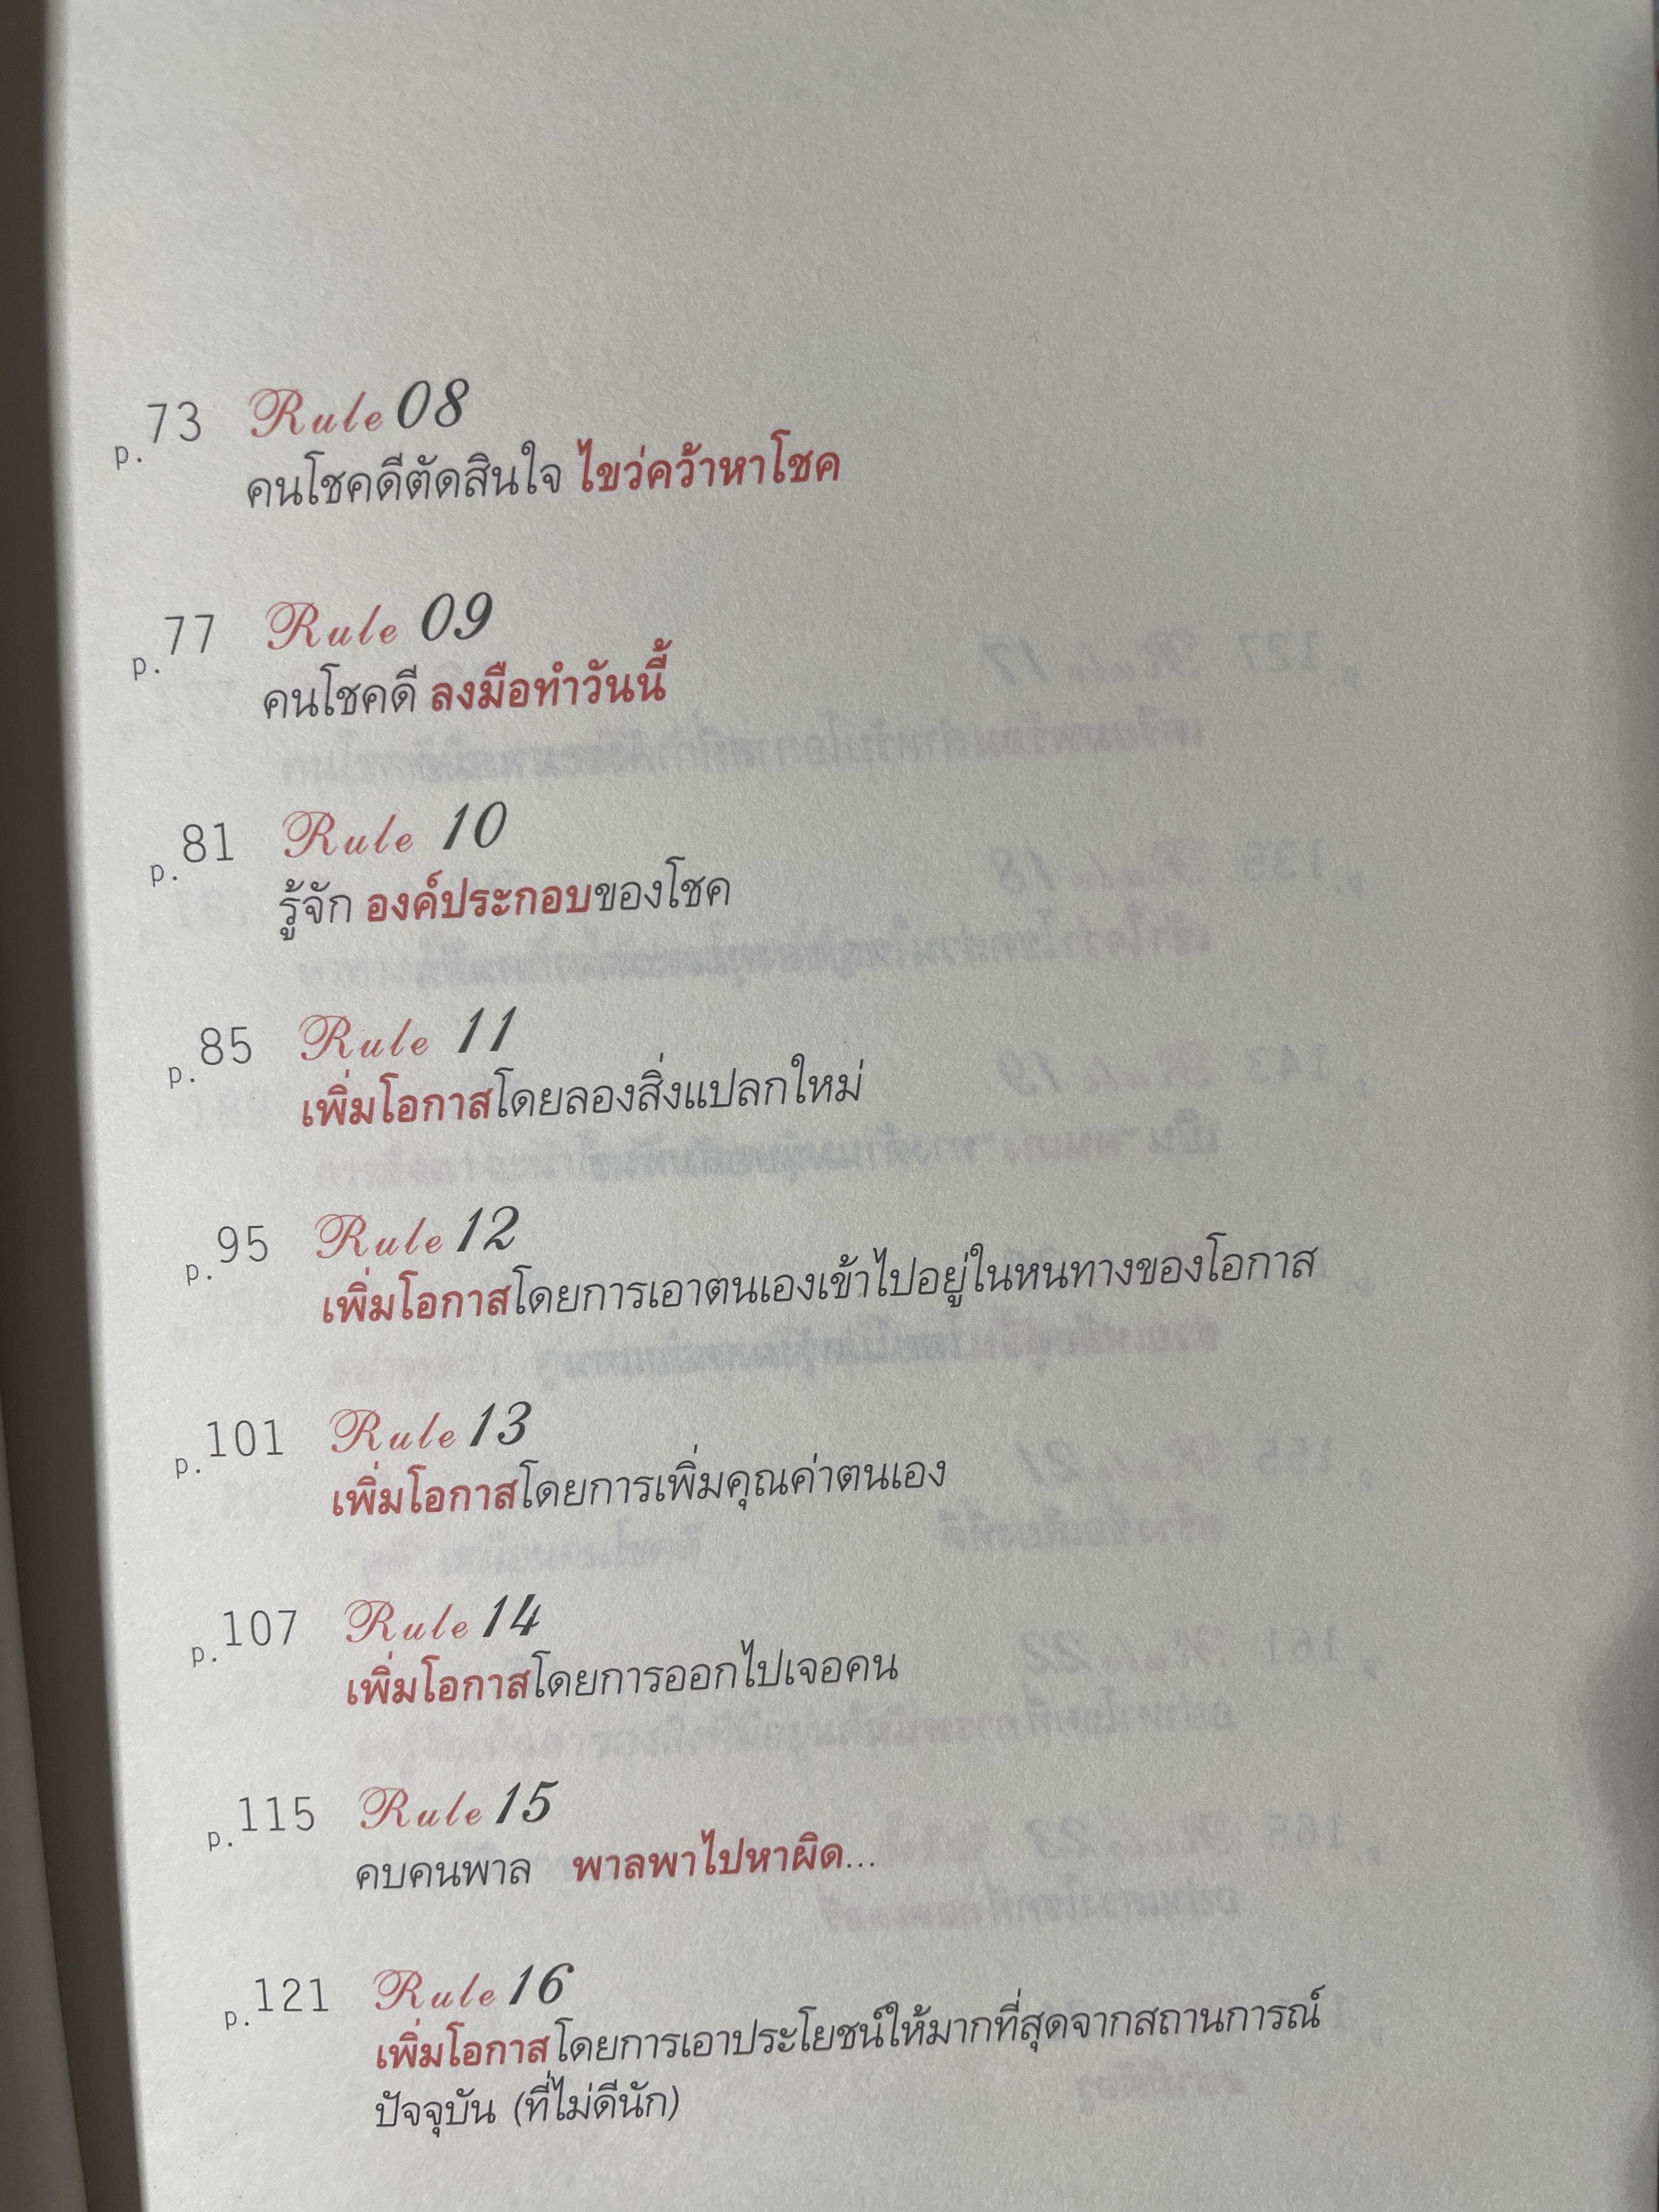 p.73 Rule 08
คนโชคดีตัดสินใจ ไขว่คว้าหาโชค
p.77 Rule 09
คนโชคดี ลงมือทำวันนี้
p.81 Rule 10
รู้จัก องค์ประกอบของโชค
p.85 Rule 11
เพิ่มโอกาสโดยลองสิ่งแปลกใหม่
p.95 Rule 12
เพิ่มโอกาสโดยการเอาตนเองเข้าไปอยู่ในหนทางของโอกาส
p.101 Rule 13
เพิ่มโอกาสโดยการเพิ่มคุณค่าตนเอง
p.107 Rule 14
เพิ่มโอกาสโดยการออกไปเจอคน
p.115 Rule 15
คบคนพาล พาลพาไปหาผิด...
p.121 Rule 16
เพิ่มโอกาสโดยการเอาประโยชน์ให้มากที่สุดจากสถานการณ์
ปัจจุบัน (ที่ไม่ดีนัก)